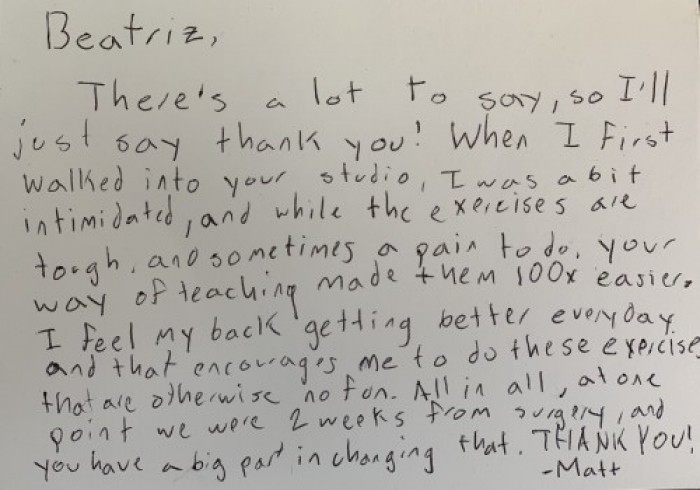 Beatriz,
There's a lot to say, so I'll
just say thank you! When I first
walked into your studio, I was a bit
intimidated, and while the exercises are
tough, and sometimes a pain to do, your
way of teaching made them 100x easier.
I feel my back getting better everyday
and that encourages me to do these exercise
that are otherwise no fun. All in all, at one
point we were 2 weeks from surgery, and
you have a big part in changing that. THANK YOU!
-Matt